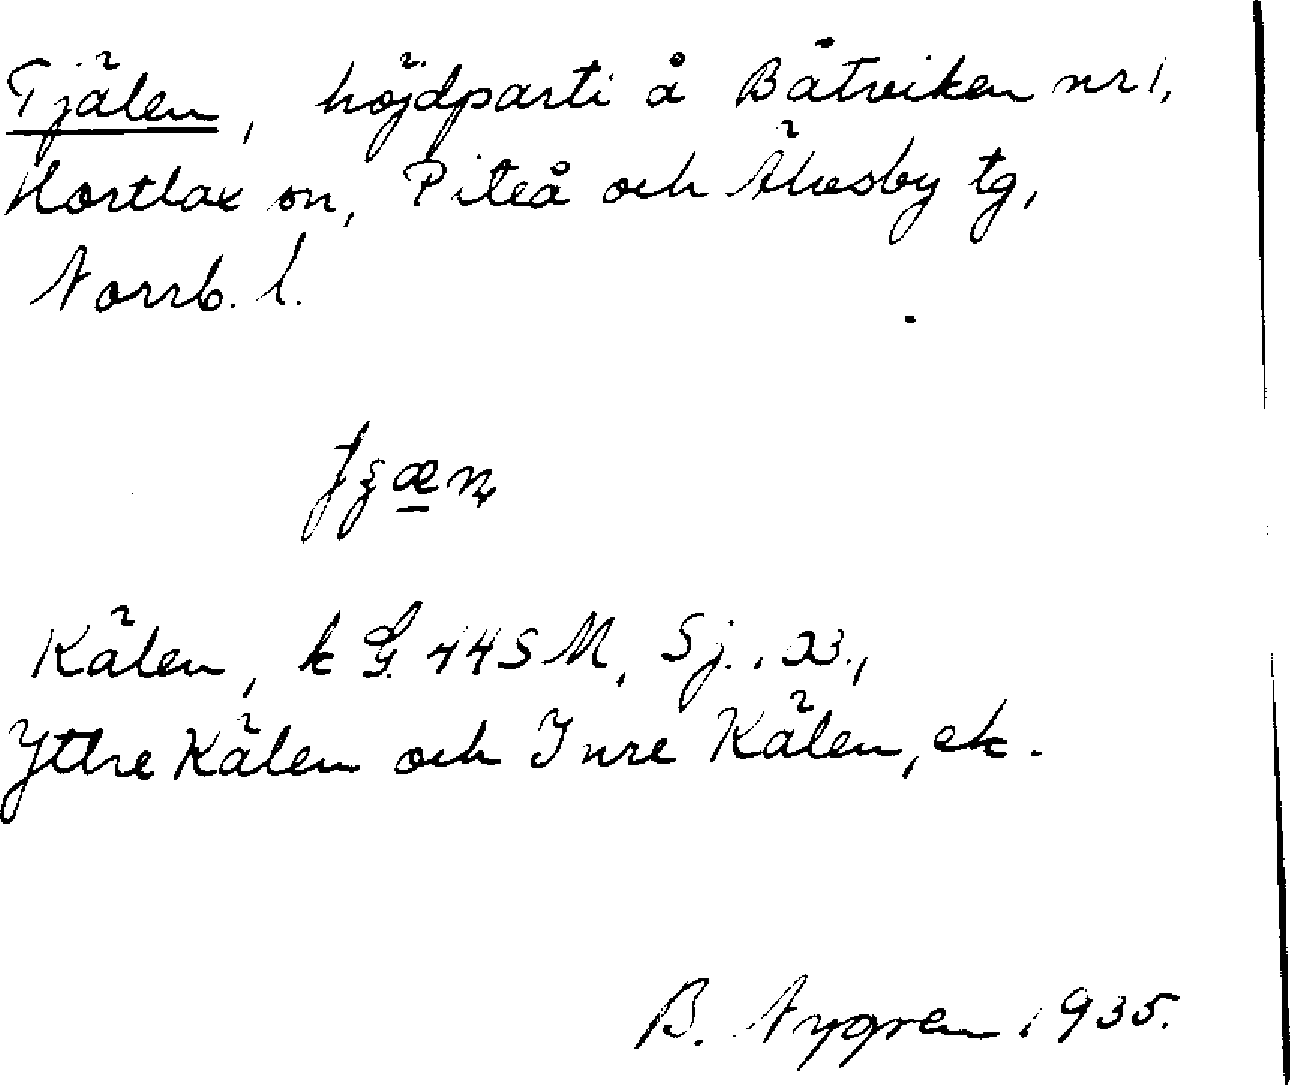 Tjälen, höjdparti å Båtviken nr 1,
Hortlax sn, Piteå och Älvsby tg,
Norrb. l.
Kälen, k G. 445 M, Sj.
Yttre Kälen och Inre Kälen, ek.
B. Nygren 1935.